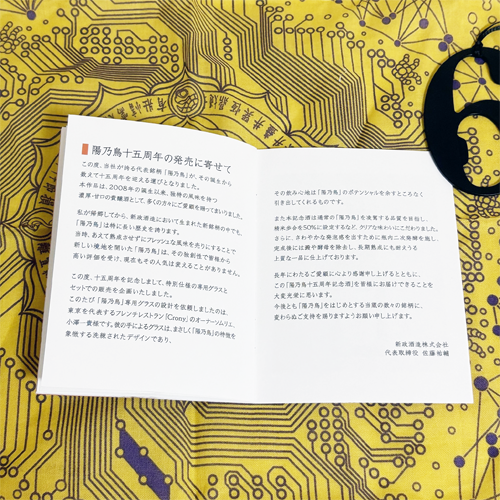 陽乃鳥十五周年の発売に寄せて
この度、当社が誇る代表銘柄「陽乃鳥」が、その誕生から
数えて十五周年を迎える運びとなりました。
本作品は、2008年の誕生以来、独特の風味を持つ
濃厚・ゼロの貴醸酒として、多くの方々にご愛顧を賜ってまいりました。
私が帰郷してから、新政酒造において生まれた新銘柄の中でも、
「陽乃鳥」は特に長い歴史を誇ります。
当時、あえて熟成させずにフレッシュな風味を売りにすることで
新しい境地を開いた「陽乃鳥」は、その独創性で皆様から
高い評価を受け、現在もその人気は変えることがありません。
この度、十五周年を記念しまして、特別仕様の専用グラスと
セットでの販売を企画いたしました。
このたび「陽乃鳥」専用グラスの設計を依頼しましたのは、
東京を代表するフレンチレストラン「Crony」のオーナーソムリエ、
小澤一貴様です。彼の手によるグラスは、まさしく「陽乃鳥」の特徴を
象徴する洗練されたデザインであり、
その飲み心地は「陽乃鳥」のポテンシャルを余すところなく
引き出してくれるものです。
また本記念酒は通常の「陽乃鳥」を凌駕する品質を目指し、
精米歩合を50%に設定するなど、クリアな味わいにこだわりました。
さらに、さわやかな発泡感を宿すために瓶内二次発酵を施し、
完成後には澱や酵母を除去し、長期熟成にも耐えうる
上質な一品に仕上げております。
長年にわたるご愛顧に心より感謝申し上げるとともに、
この「陽乃鳥十五周年記念酒」を皆様にお届けできることを
大変光栄に思います。
今後とも「陽乃鳥」をはじめとする当蔵の数々の銘柄に、
変わらぬご支持を賜りますようお願い申し上げます。
新政酒造株式会社
代表取締役 佐藤祐輔
6